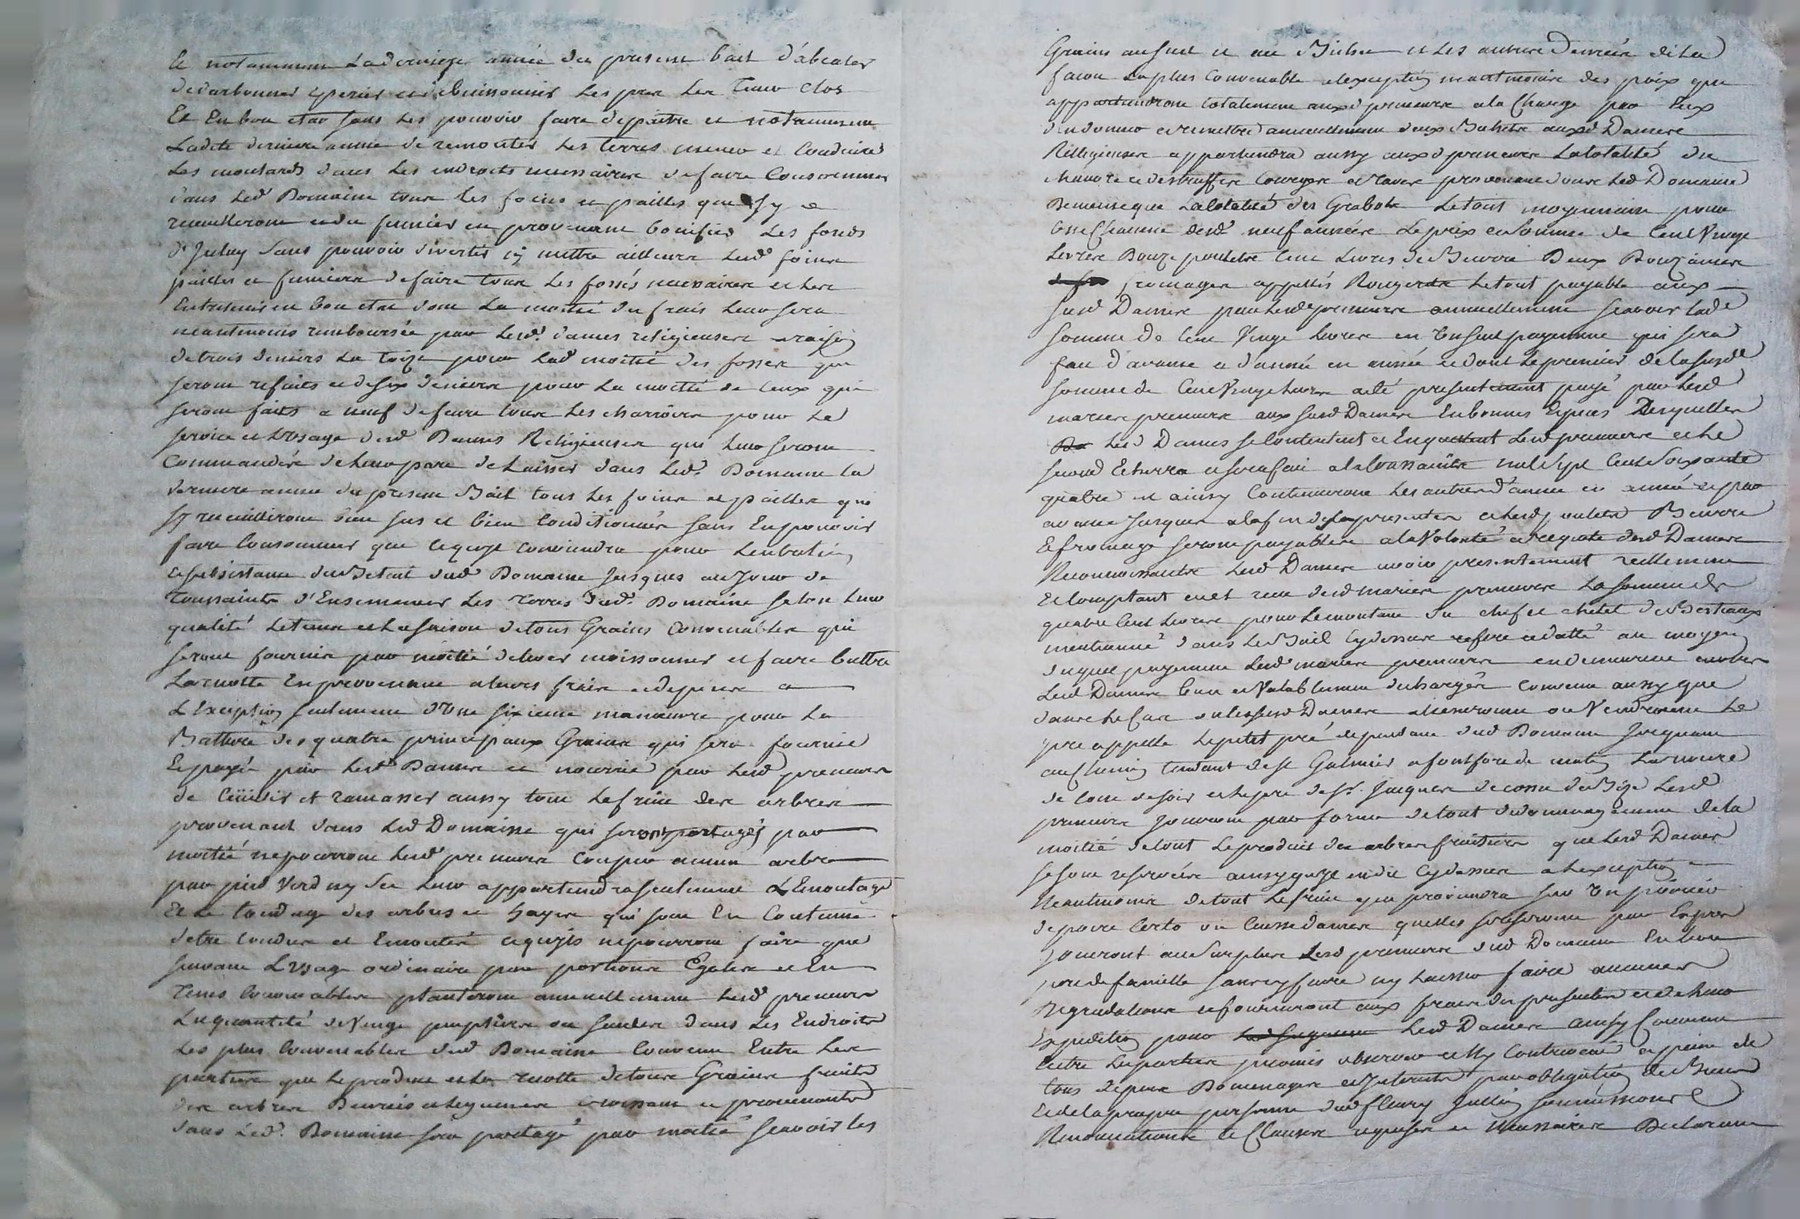 Et notamment La derniere année du present bail d'abeater
de darbonner Eperier et débuissonner Les prez Les Tenir clos
Et En bon etat sans Les pouvoir faire depaitre et notamment
Ladite derniere année de remonter Les terres mener et Conduire
Les moutards dans Les endroits necessaires de faire Consommer
dans Led. Domaine tous Les foins et pailles qui s'y
recueilleront et du fumier en provenant bonifier Les fonds
d'Iceluy sans pouvoir divertir ny mettre ailleurs Lesd. foins
pailles et fumiers de faire tous Les fossés necessaires et Les
Entretenir en bon etat dont La moitié du frais Leur sera
neantmoins remboursée par Lesd. dames religieuses a raison
de trois deniers La toize pour Lad. moitié des fosses qui
seront refaits et de six deniers pour La moitié de Ceux qui
seront faits a neuf de faire tous Les charrois pour Le
service et L'usage desd. Dames Religieuses qui Leur seront
Commandés de Leur part de Laisser dans Led. Domaine La
derniere année du present Bail tous Les foins et pailles qui
s'y recueilliront bien sus et bien Conditionnés sans En pouvoir
faire Consommer que ce qu'il conviendra pour L'entretien
et subsistance du Betail dud. Domaine Jusques au Jour de
Toussaints d'Ensemencer Les terres dud. Domaine selon Leur
qualité Le tems et La saison de tous Grains Convenables qui
seront fournis par moitié de Lever moissonner et faire battre
La recolte En provenant a leurs frais et depens a
L'Exception seulement d'Une sixieme manœuvre pour La
Batture des quatre principaux Grains qui sera fournie
Et payée par Lesd. Dames et nourrie par Lesd. preneurs
de Cüeillir et ramasser aussy tous Les fruits des arbres
provenant dans Led. Domaine qui seront partagés par
moitié ne pourront Lesd. preneurs Couper aucun arbre
par pied Verd ny Sec Leur appartiendra seulement L'Emontage
Et Le tondage des arbres et hayes qui sont En Coutume
d'etre tondus et Emontés ce qu'ils ne pourront faire que
suivant L'Usage ordinaire par portions Egales et En
Tems Convenables planteront annuellement Lesd. preneurs
La quantité de Vingt peupliers ou saules dans Les Endroits
Les plus Convenables dud. Domaine Convenu Entre Les
parties que Le produit et La recolte de tous Grains fruits
des arbres Denrées et Legumes croissant et provenants
dans Led. Domaine sera partagé par moitié scavoir Les
Grains au sueil et au Bichet et Les autres Denrées de La
facon La plus Convenable a L'exception neantmoins des poids qui
appartiendront totalement auxd. preneurs a La Charge par Eux
d'en donner et remettre annuellement deux Bichets auxd. Dames
Relligieuses appartiendra aussy auxd. preneurs La totalité du
chanvre et des truffes Courges et raves provenant dans Led. Domaine
De meme que La totalité des Grabots Le tout moyennant pour
Une Chacune desd. neuf années Le prix et somme de Cent Vingt
Livres Douze poulets Cent Livres de Beurre Deux Douzaines
fromages appellés Rougerets Le tout payable aux
susd. Dames par Lesd. preneurs annuellement scavoir Lad.
somme de Cent Vingt Livres en Un seul payement qui sera
fait d'avance et d'année en année et dont Le premier de La susd.
somme de Cent Vingt Livres a été presentement payé par Lesd.
mariés preneurs aux susd. Dames En bonnes Especes Desquelles
Lesd. Dames se Contentent et En quittent Lesd. preneurs et Le
second Echerra et se fera a La Toussaints mil sept Cent Soixante
quatre et ainsy Continueront Les autres d'année en année et par
avance Jusques a La fin des presentes et Lesd. poulets Beurre
Et fromage seront payables a La Volonté et requete desd. Dames
Reconnoissantes Lesd. Dames avoir presentement reellement
Et Comptant eu et reçu desd. mariés preneurs La somme de
quatre Cent Livres pour Le montant du chef et cheptel de Bestiaux
mentionné dans Le Bail Cydessus referé et datté au moyen
duquel payement Lesd. mariés preneurs en demeurent envers
Lesd. Dames bien et Valablement dechargés Convenu aussy que
dans Le Cas ou Lesd. Dames alieneroient ou Vendroient Le
pre appellé Le petit pré dependant dud. Domaine Joignant
au Chemin tendant de St. Galmier a fontfort de matin La riviere
de Coise de soir et Le pre de Sr. Jacques de Bize Lesd.
preneurs Jouiront par forme de tout dedommagement de La
moitié de tout Le produit des arbres fruitiers que Lesd. Dames
se sont reservées ainsy qu'il en dit Cydessus a L'exception
Neantmoins de tout Le fruit qui proviendra sur Un poirier
de poire Certo ou Cuisse dames qu'elles se reservent par Exprès
Jouiront au surplus Lesd. preneurs dud. Domaine En bon
pere de famille sans y faire ny Laisser faire aucunes
degradations et fourniront aux frais des presentes et de Leur
Expedition pour Lesd. Dames ainsy Convenu
Entre Les parties promis observer et N'y Contrevenir a peine de
tous Depens Dommages et Interets par obligation de Biens
Et de La propre personne dud. fleury Jullien soumissions
Renonciations et Clauses requises et necessaires Declarant